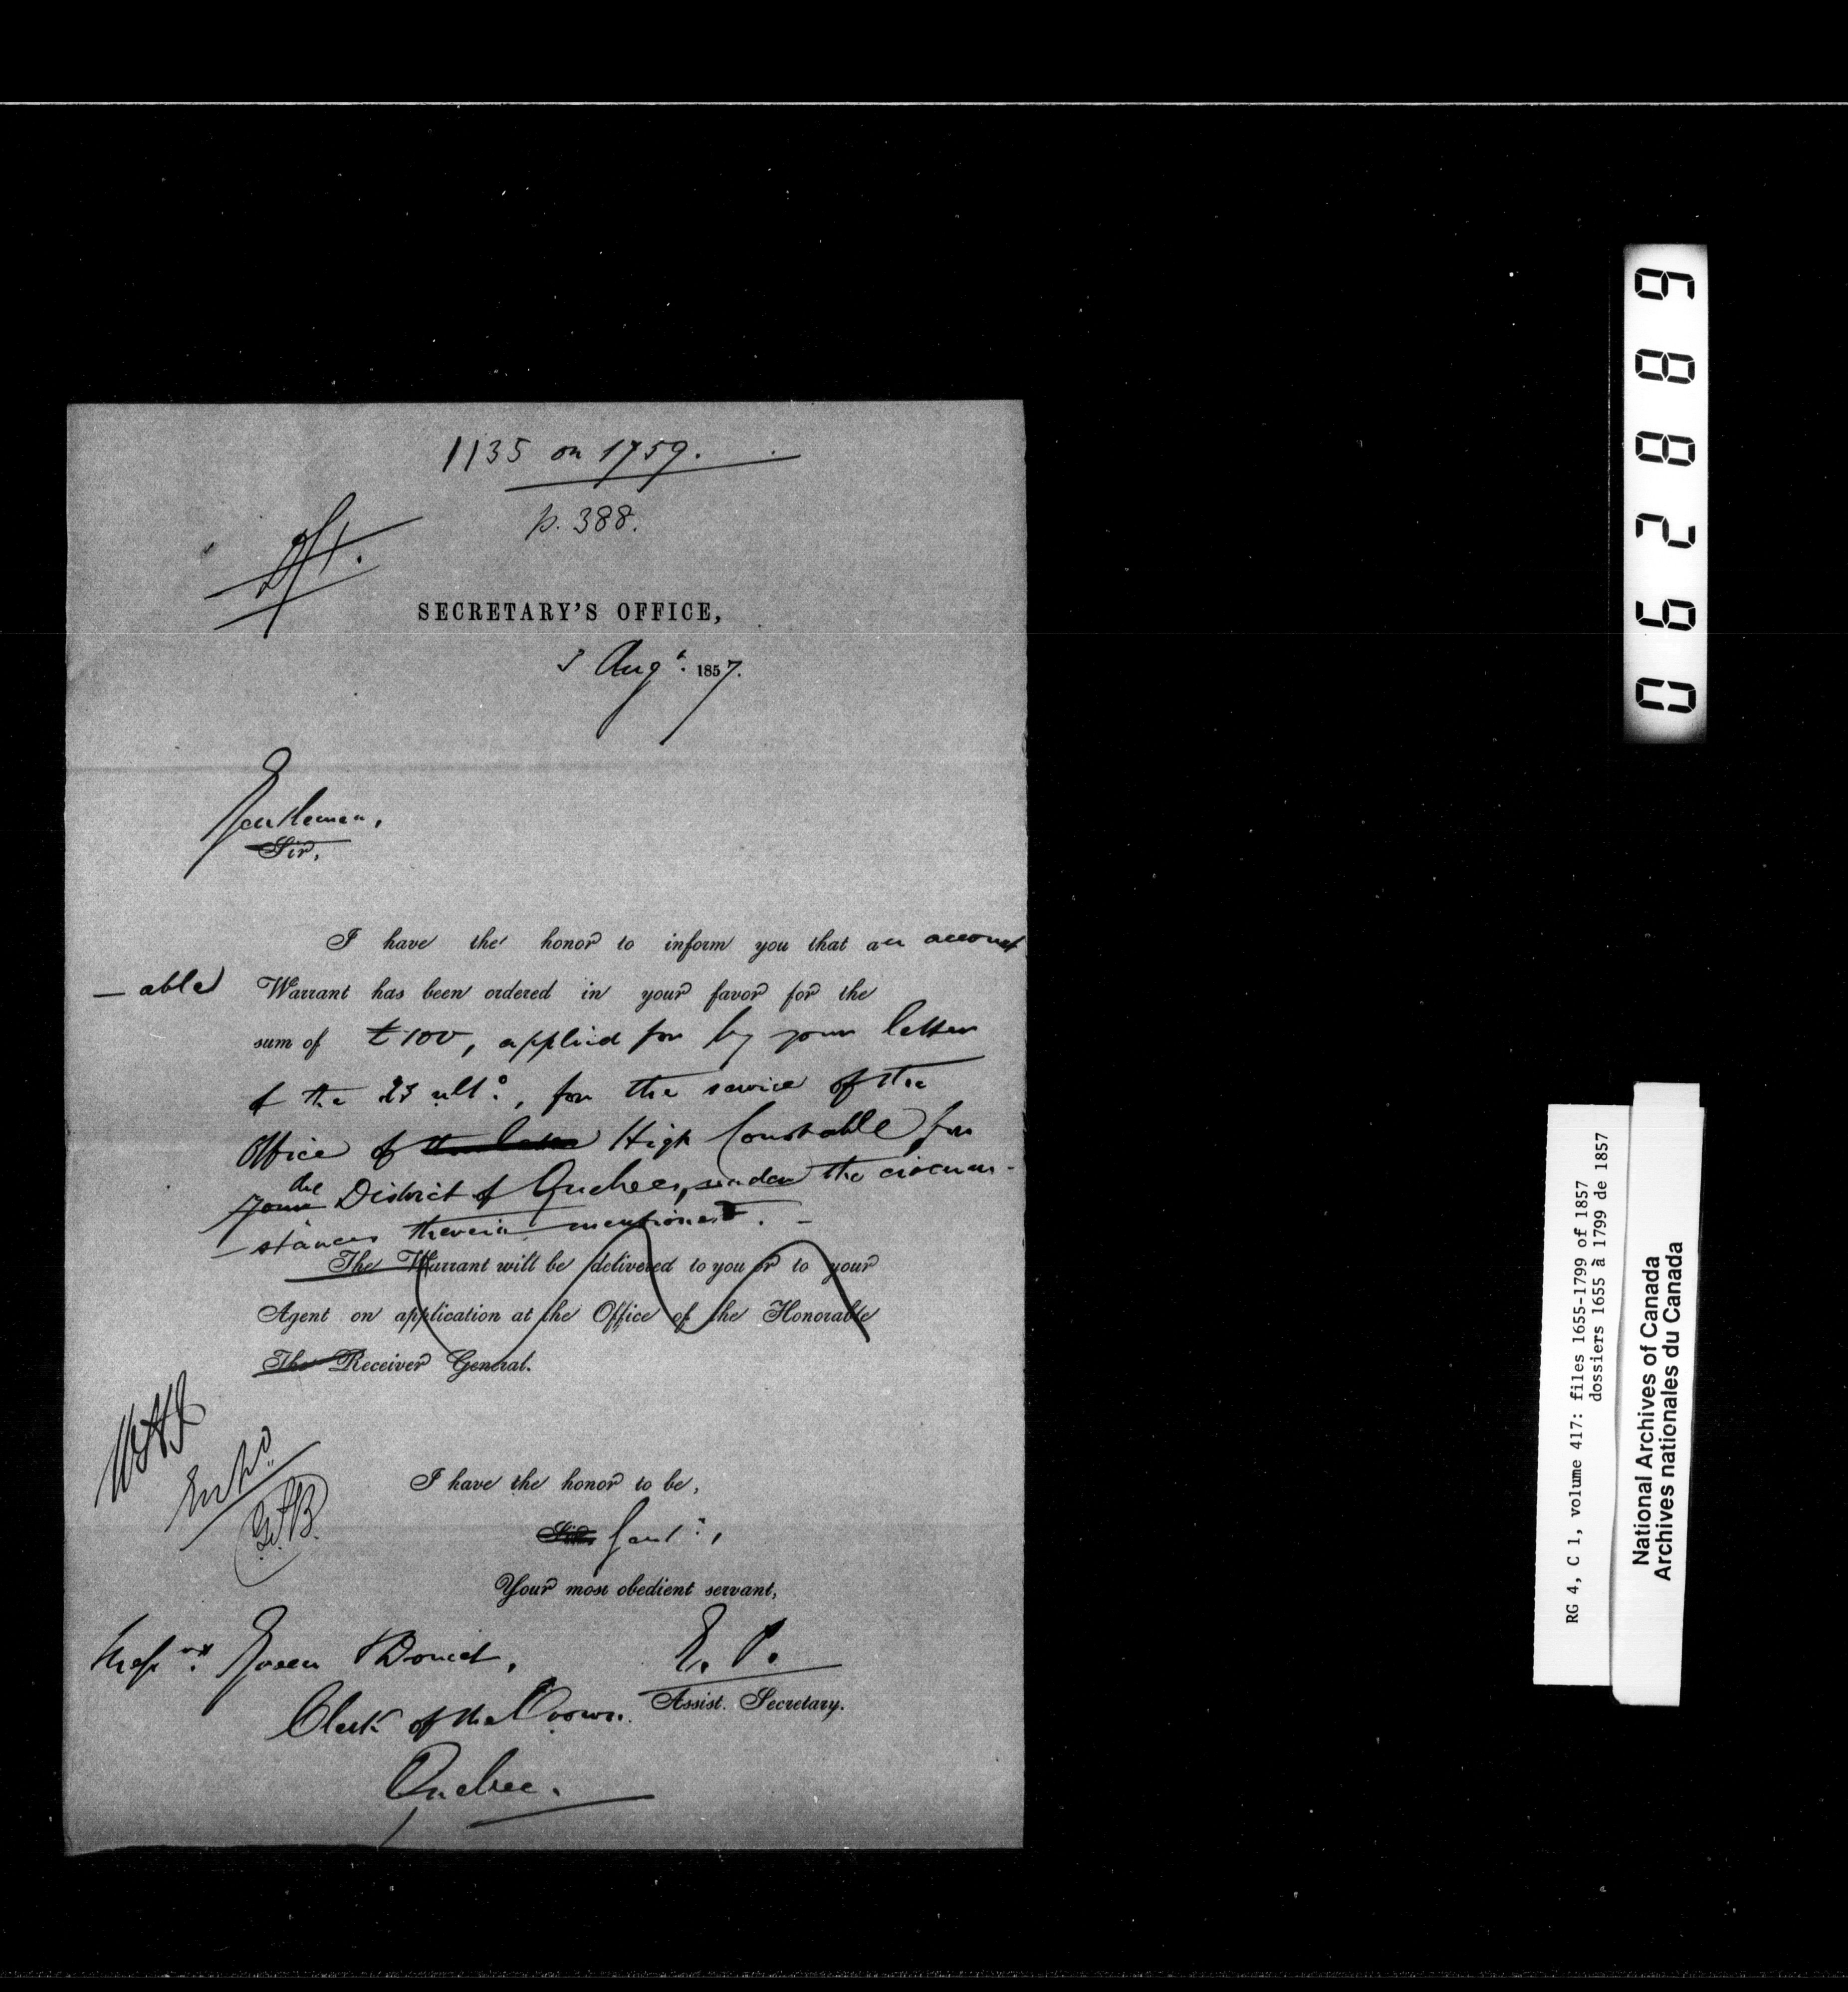 1135 on 1759.
p. 388.
Dft.
SECRETARY'S OFFICE,
3 Augt. 1857.
Gentlemen,
Sir,
I have the honor to inform you that an account
-able Warrant has been ordered in your favor for the
sum of £100, applied for by your letter
of the 23 ulto., for the service of the
Office of High Constable for
the
your District of Quebec, under the circum-
-stances therein mentioned.
The Warrant will be delivered to you or to your
Agent on application at the Office of the Honorable
The Receiver General.
I have the honor to be,
Sir, Gent:,
Your most obedient servant,
E. P.
Messrs. Green & Doucet,
Assist. Secretary.
Clerk of the Crown.
Quebec.
068289
RG 4, C 1, volume 417: files 1655-1799 of 1857
dossiers 1655 à 1799 de 1857
National Archives of Canada
Archives nationales du Canada